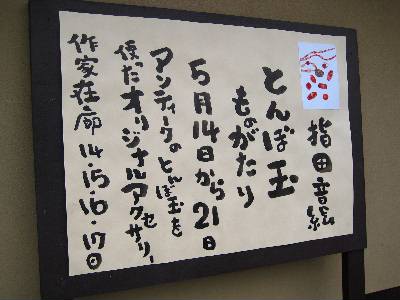 指田音絵
とんぼ玉
ものがたり
5月14日から21日
アンティークのとんぼ玉を
使ったオリジナルアクセサリー
作家在廊 14・15・16・17日